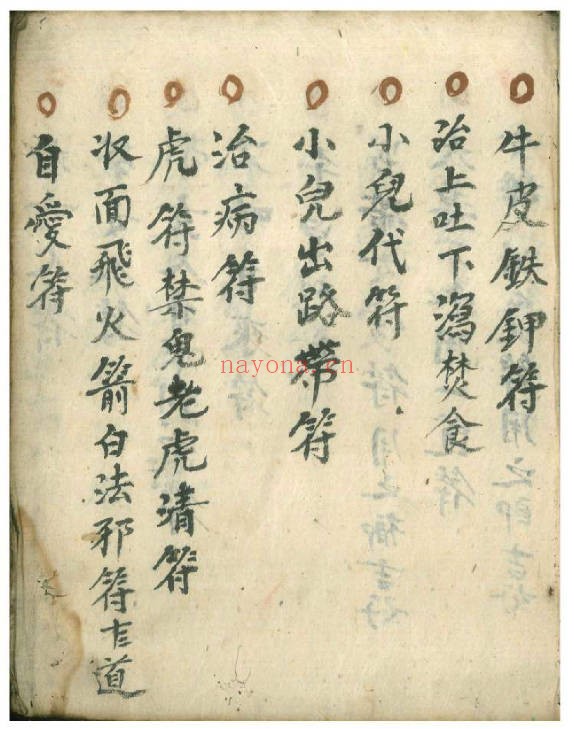 牛皮鉄鉀符
治上吐下瀉焚食
小兒代符
小兒出路帶符
治病符
虎符禁鬼老虎清符
收面飛火箭白法邪符左道
自愛符
nayona.cn